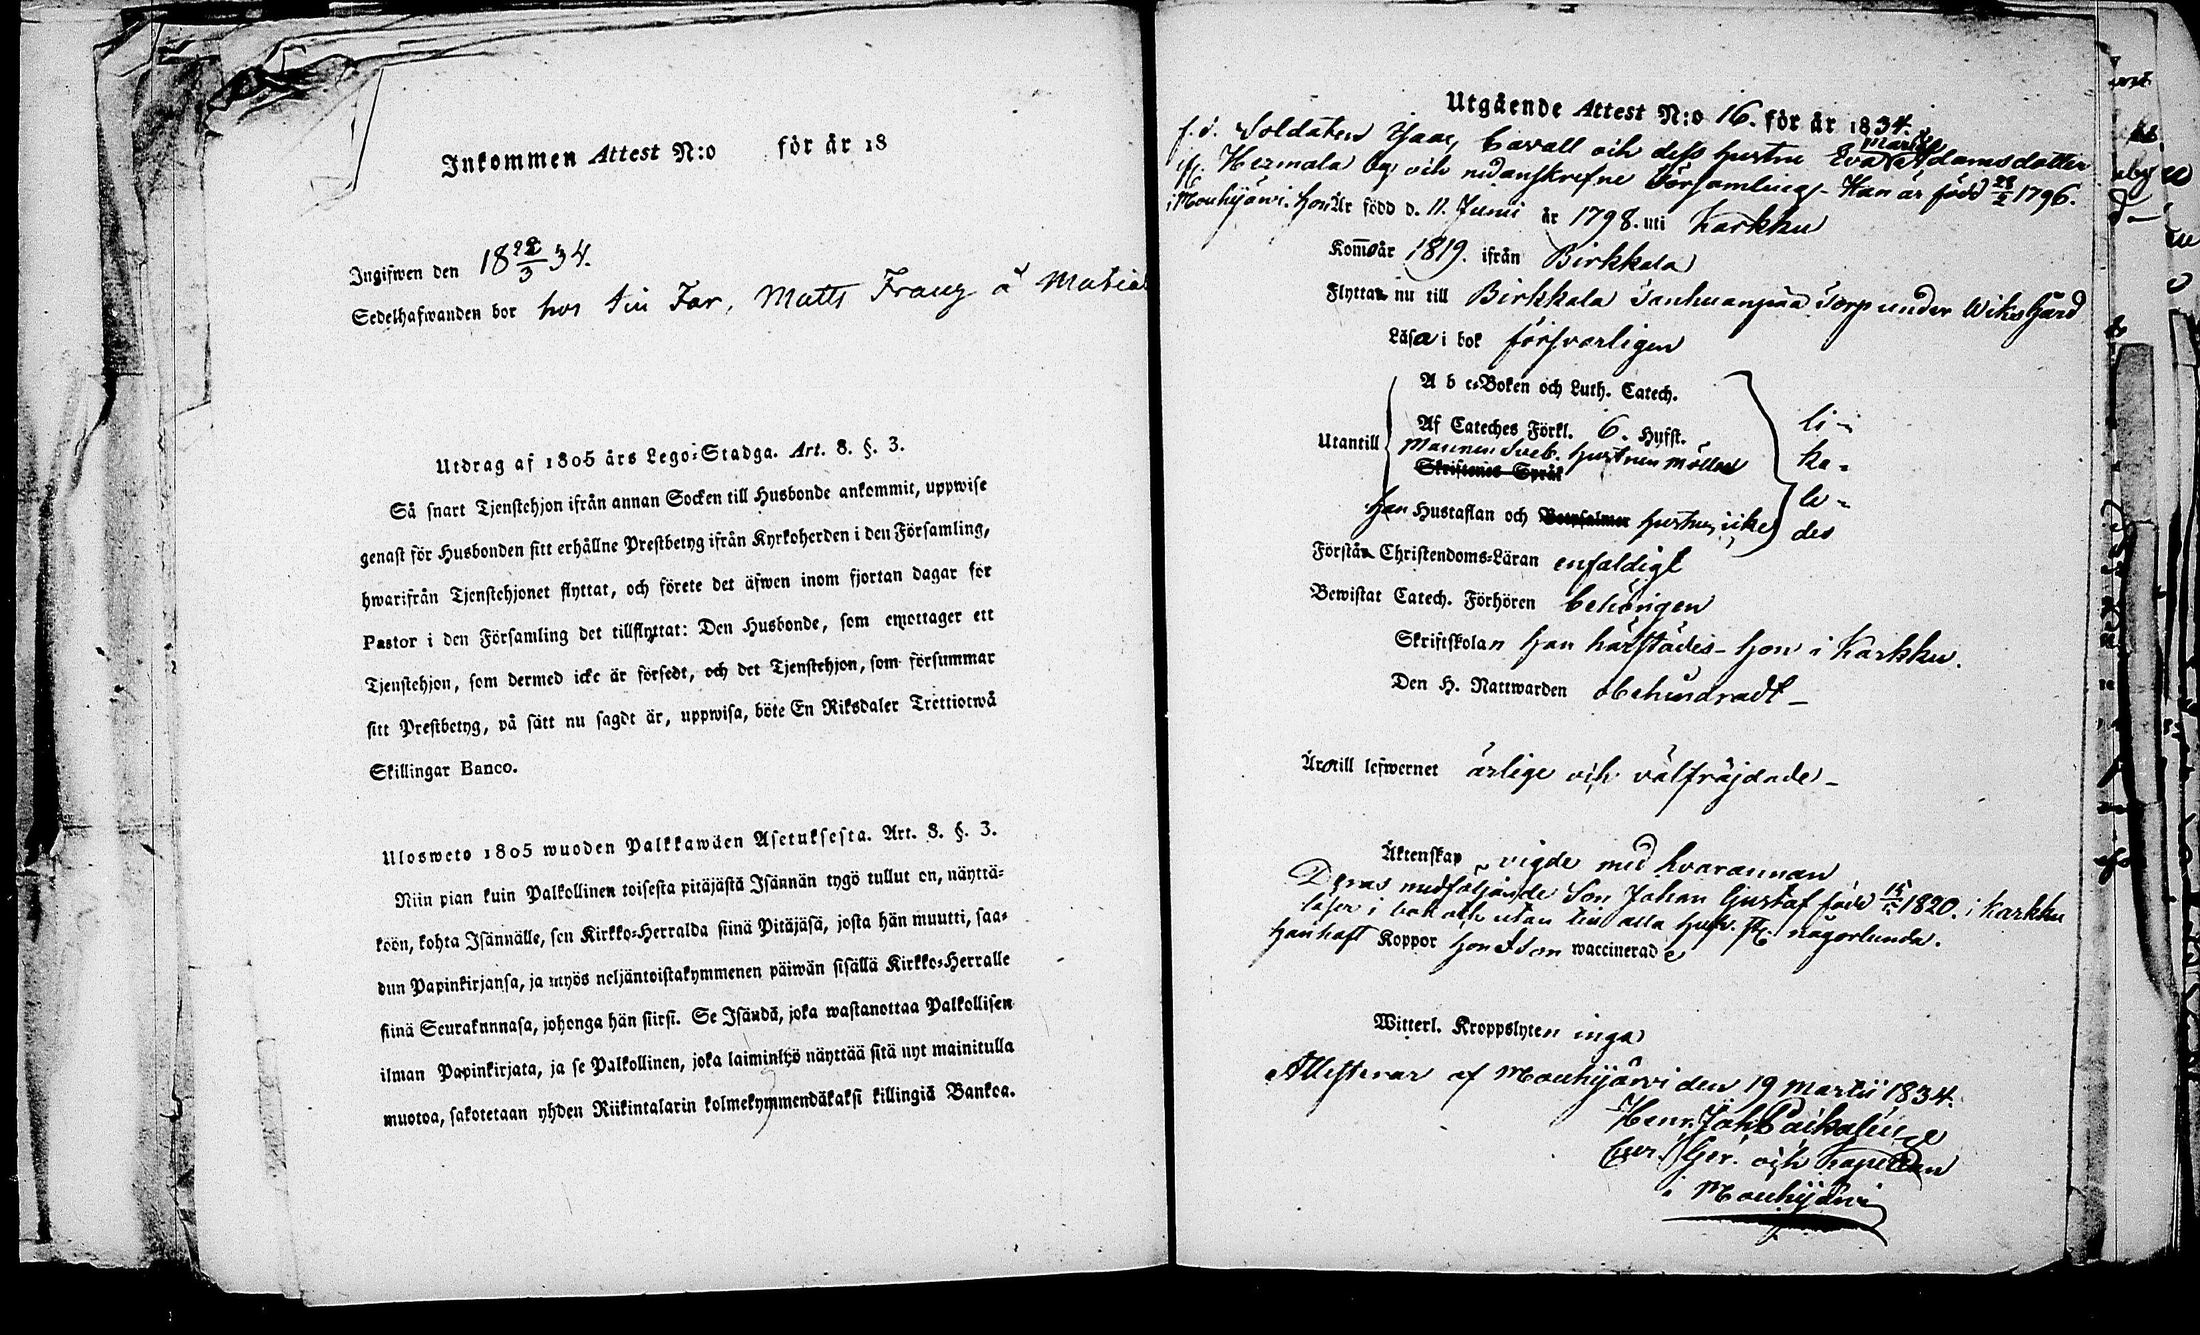 Inkommen Attest N:o för år 18
Ingifwen den 18 22/3 34.
Sedelhafwanden bor hos sin Far, Matts Franz å
Utdrag af 1805 års Lego-Stadga. Art. 8. §. 3.
Så snart Tjenstehjon ifrån annan Socken till Husbonde ankommit, uppwise
genast för Husbonden sitt erhållne Prestbetyg ifrån Kyrkoherden i den Församling,
hwarifrån Tjenstehjonet flyttat, och förete det äfwen inom fjortan dagar för
Pastor i den Församling det tillflyttat: Den Husbonde, som emottager ett
Tjenstehjon, som dermed icke är försedt, och det Tjenstehjon, som försummar
sitt Prestbetyg, på sätt nu sagdt är, uppwisa, böte En Riksdaler Trettiotwå
Skillingar Banco.
Ulosweto 1805 wuoden Palkkawäen Asetuksesta. Art. 8. §. 3.
Niin pian kuin Palkollinen toisesta pitäjästä Isännän tygö tullut on, näyttä-
köön, kohta Isännälle, sen Kirkko-Herralda siinä Pitäjäsä, josta hän muutti, saa-
dun Papinkirjansa, ja myös neljäntoistakymmenen päiwän sisällä Kirkko-Herralle
siinä Seurakunnasa, johonga hän siirsi. Se Isändä, joka wastanottaa Palkollisen
ilman Papinkirjata, ja se Palkollinen, joka laiminlyö näyttää sitä nyt mainitulla
muotoa, sakotetaan yhden Riikintalarin kolmekymmendäkaksi killingiä Bankoa.
Utgående Attest N:o 16. för år 1834.
f. d. Soldaten Isaac Cavall och dess hustru Eva Maria Adamsdotter
ifr. Hermala by och nedanskrefne Församling - Han är född 28/2 1796.
i Mouhijärvi. Hon Är född d. 11. Junii år 1798. uti Karkku
Kom̄o år 1819. ifrån Birkkala
Flytta nu till Birkkala Tanhuanpää Torp under Wiks Gård
Läsa i bok försvarligen
A b c-Boken och Luth. Catech.
Utantill Af Cateches Förkl. 6. Hufst.
Mannen Sveb. hustrun möller
Skriftenes Språk
Han Hustaflan och Botpsalmer hustrun icke
li-
ka-
le-
des
Förstå Christendoms-Läran enfaldigt
Bewistat Catech. Förhören behörigen
Skriftskolan han härstädes - hon i Karkku.
Den H. Nattwarden obehindradt -
Äro till lefwernet ärlige och välfräjdade -
Äktenskap vigde med hvarannan
Deras medföljande Son Johan Gustaf född 1820. i Karkku
läser i bok och utan till alla Hufst. någorlunda.
Han haft Koppor Hon & Son waccinerade
Witterl. Kroppslyten inga
Attesterar af Mouhijärvi den 19 Martii 1834.
Henr. Joh.
och Kapellan
i Mouhijärvi